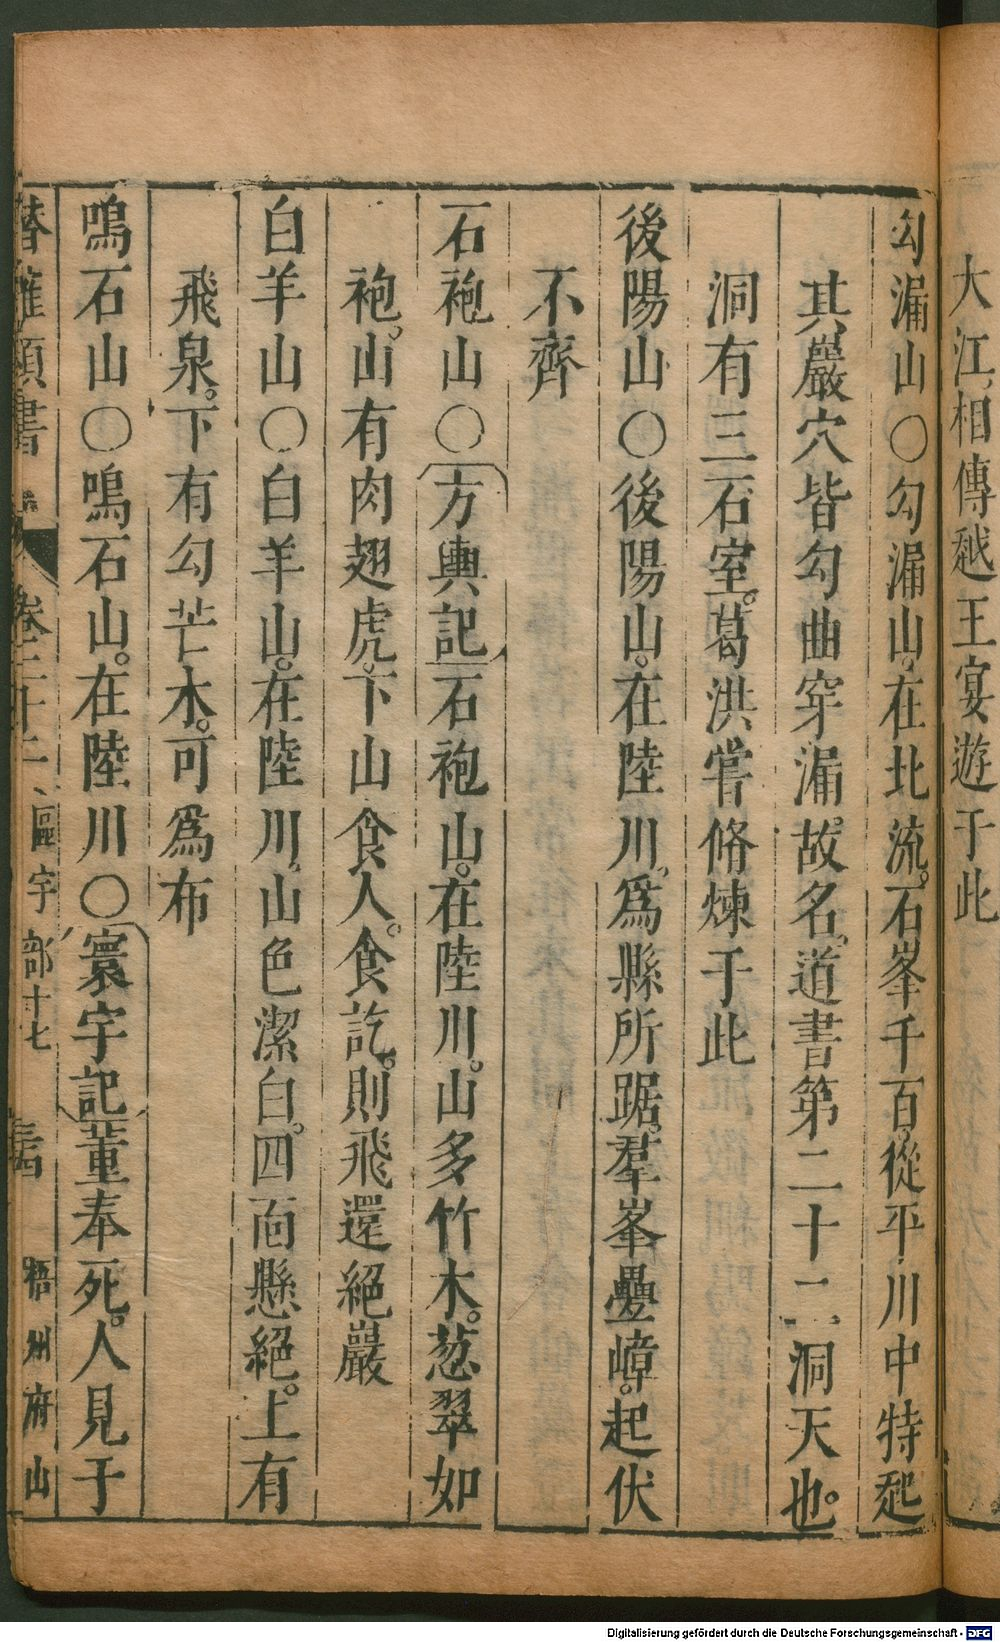 大江相傳越王宴遊于此
勾漏山○勾漏山。在北流。石峯千百。從平川中特起
其巖穴皆勾曲穿漏。故名。道書第二十二洞天也。
洞有三石室。葛洪嘗脩煉于此
後陽山○後陽山。在陸川。爲縣所踞。羣峯疊嶂。起伏
不齊
石袍山○方輿記石袍山。在陸川。山多竹木。葱翠如
袍。山有肉翅虎。下山食人。食訖。則飛還絕巖
白羊山○白羊山。在陸川。山色潔白。四面懸絕。上有
飛泉。下有勾芒木。可爲布
鳴石山○鳴石山。在陸川○寰宇記董奉死。人見于
潛確類書 卷二十二 區宇部十七 梧州府山
Digitalisierung gefördert durch die Deutsche Forschungsgemeinschaft - DFG